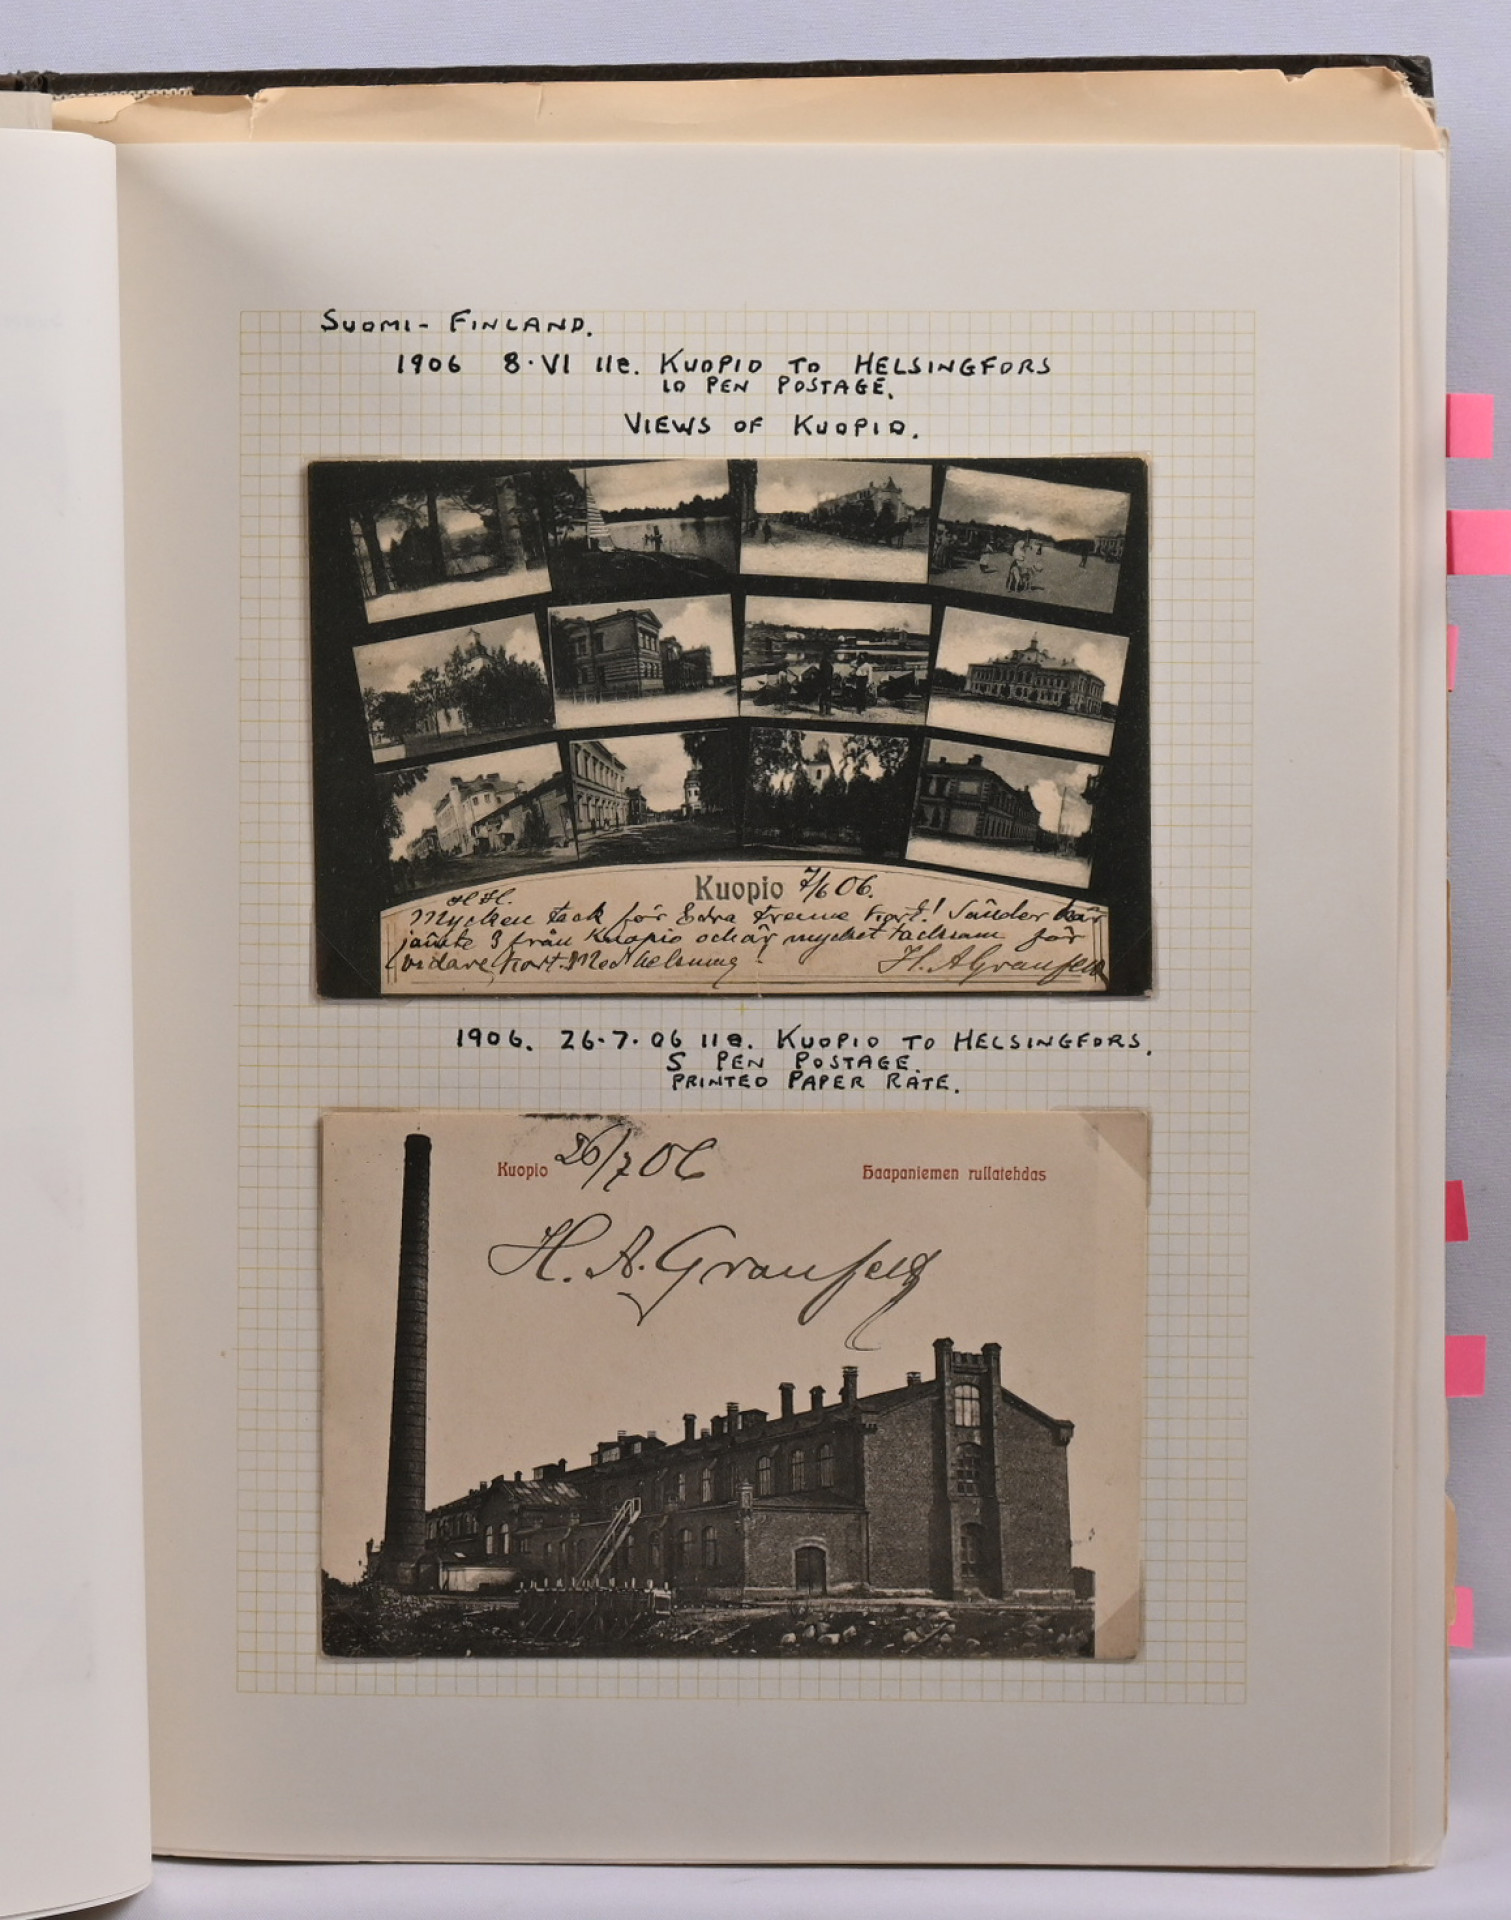 SUOMI - FINLAND.
1906 8·VI 11e. KUOPIO TO HELSINGFORS
10 PEN POSTAGE.
VIEWS OF KUOPIO.
Kuopio 7/6 06.
H H.
Mycken tack för Edra trenne kort! Sänder här
jämte 3 från Kuopio och är mycket tacksam för
vidare kort. Med helsning!
H. A Granfeld
1906. 26·7·06 11e. KUOPIO TO HELSINGFORS.
5 PEN POSTAGE.
PRINTED PAPER RATE.
Kuopio 26/7 06
Haapaniemen rullatehdas
H. A. Granfeld